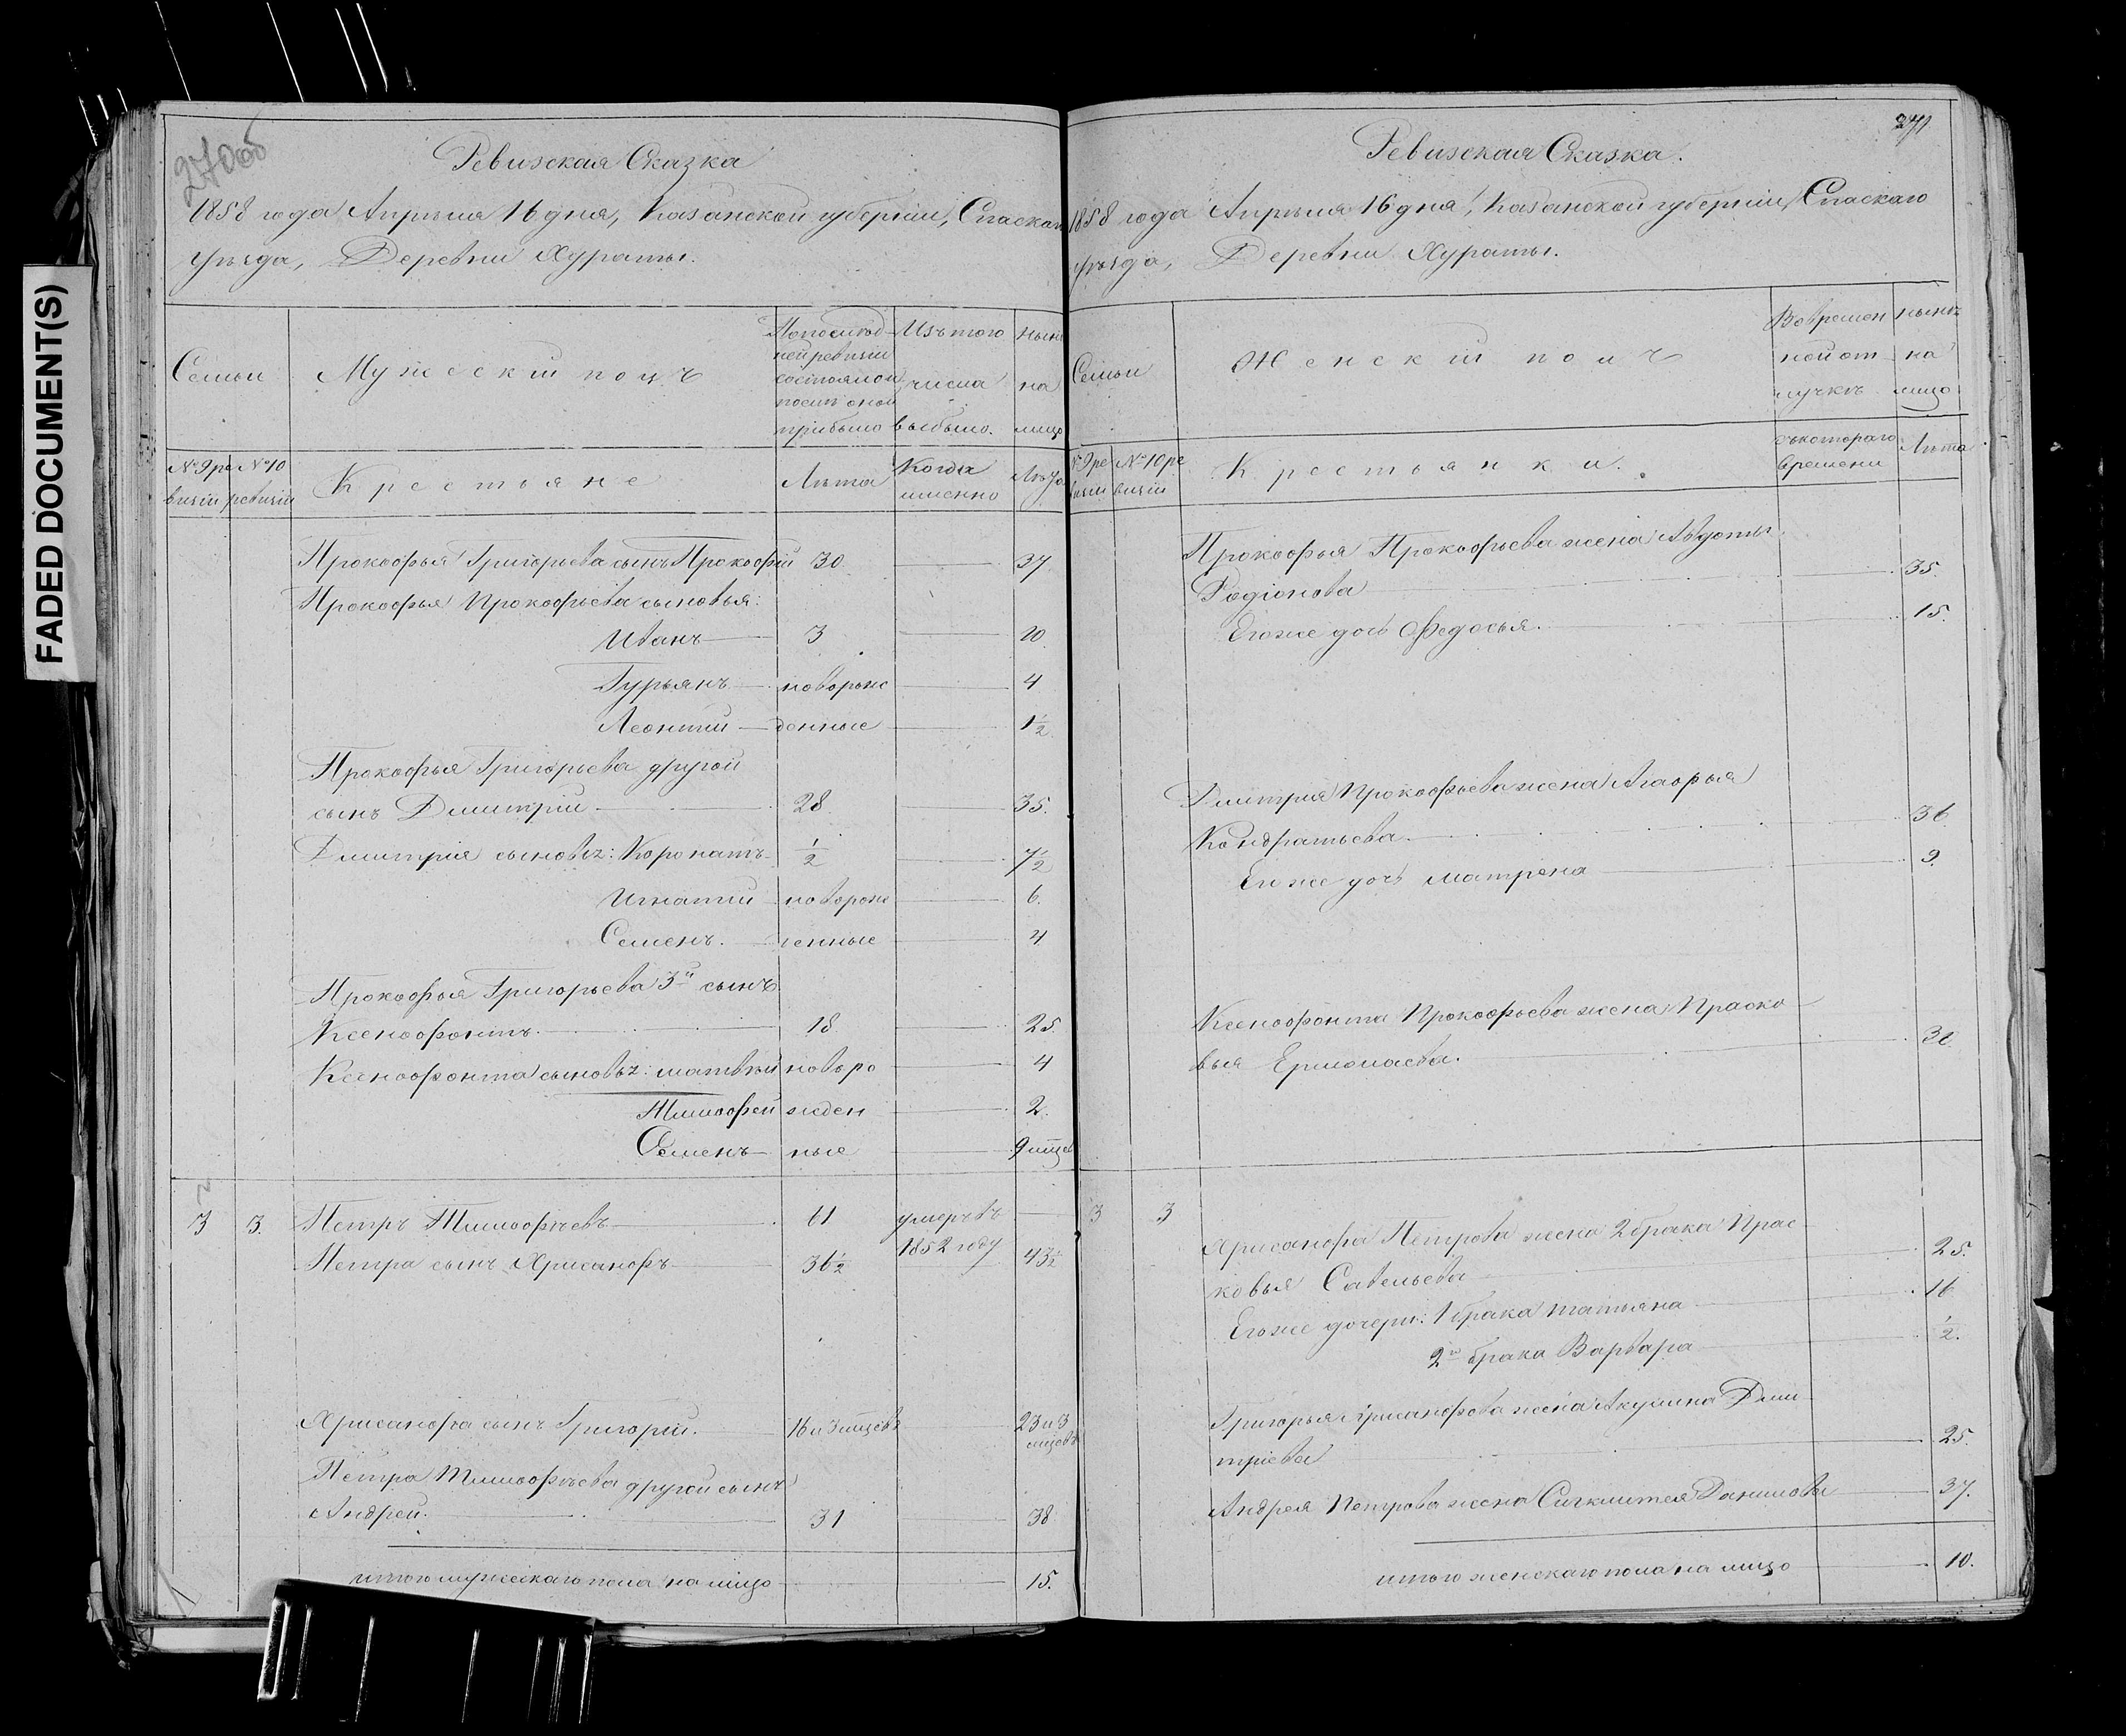 FADED DOCUMENT(S)
270об
Ревизская Сказка
1858 года Апрѣля 16 дня, Казанской губерніи, Спаскаго
уѣзда, Деревни Хураты.
Семьи
Мужескій полъ
По послѣд
ней ревизіи
состояло и
послѣ оной
прибыло
Изъ того
числа
выбыло.
Нынѣ
на
лицо
№ 9 ре
визіи
№ 10
ревизіи
Крестьяне
Лѣта
Когда
именно
Лѣта
Прокофья Григорьева сынъ Прокофій 30 37
Прокофья Прокофьева сыновья:
Иванъ 3 10
Гурьянъ новорож 4
Леонтій денные 1 1/2
Прокофья Григорьева другой
сынъ Дмитрій 28 35.
Дмитрія сыновьz: Коронатъ 1/2 7 1/2
Игнатій новорож 6.
Семенъ. денные 4
Прокофья Григорьева 3й сынъ
Ксенофонтъ. 18. 25.
Ксенофонта сыновьz: Матвѣй новоро 4
Тимофей жден 2.
Семенъ ные 9 мцев
3 3. Петръ Тимофѣевъ 61 умеръ въ
1852 году
Петра сынъ Хрисанфъ 36 1/2 43 1/2
Хрисанфа сынъ Григорій. 16 и 3 мцевъ 23 и 3
мцевъ
Петра Тимофѣева другой сынъ
Андрей. 31 38
итого мужескаго пола на лицо 15.
271
Ревизская Сказка.
1858 года Апрѣля 16 дня, Казанской губерніи, Спаскаго
уѣзда, Деревни Хураты.
Семьи
Женскій полъ
Во времен
ной от
лучкѣ
нынѣ
на
лицо
№ 9 ре
визіи
№ 10 ре
визіи
Крестьянки.
съ котораго
времени
Лѣта
Прокофья Прокофьева жена Авдотья
Родіонова 35.
Его же дочь Федосья. 15.
Дмитрія Прокофьева жена Агафья
Кондратьева. 36
Его же дочь Матрена 9.
Ксенофонта Прокофьева жена Праско
вья Ермолаева.
3 3 Хрисанфа Петрова жена 2 брака Прас
ковья Савельева 25.
Его же дочери: 1 брака Татьяна 16
2го брака Варвара 1/2.
Григорья Хрисанфова жена Акулина Дми
тріева 25.
Андрея Петрова жена Данилова 37.
итого женскаго пола на лицо 10.